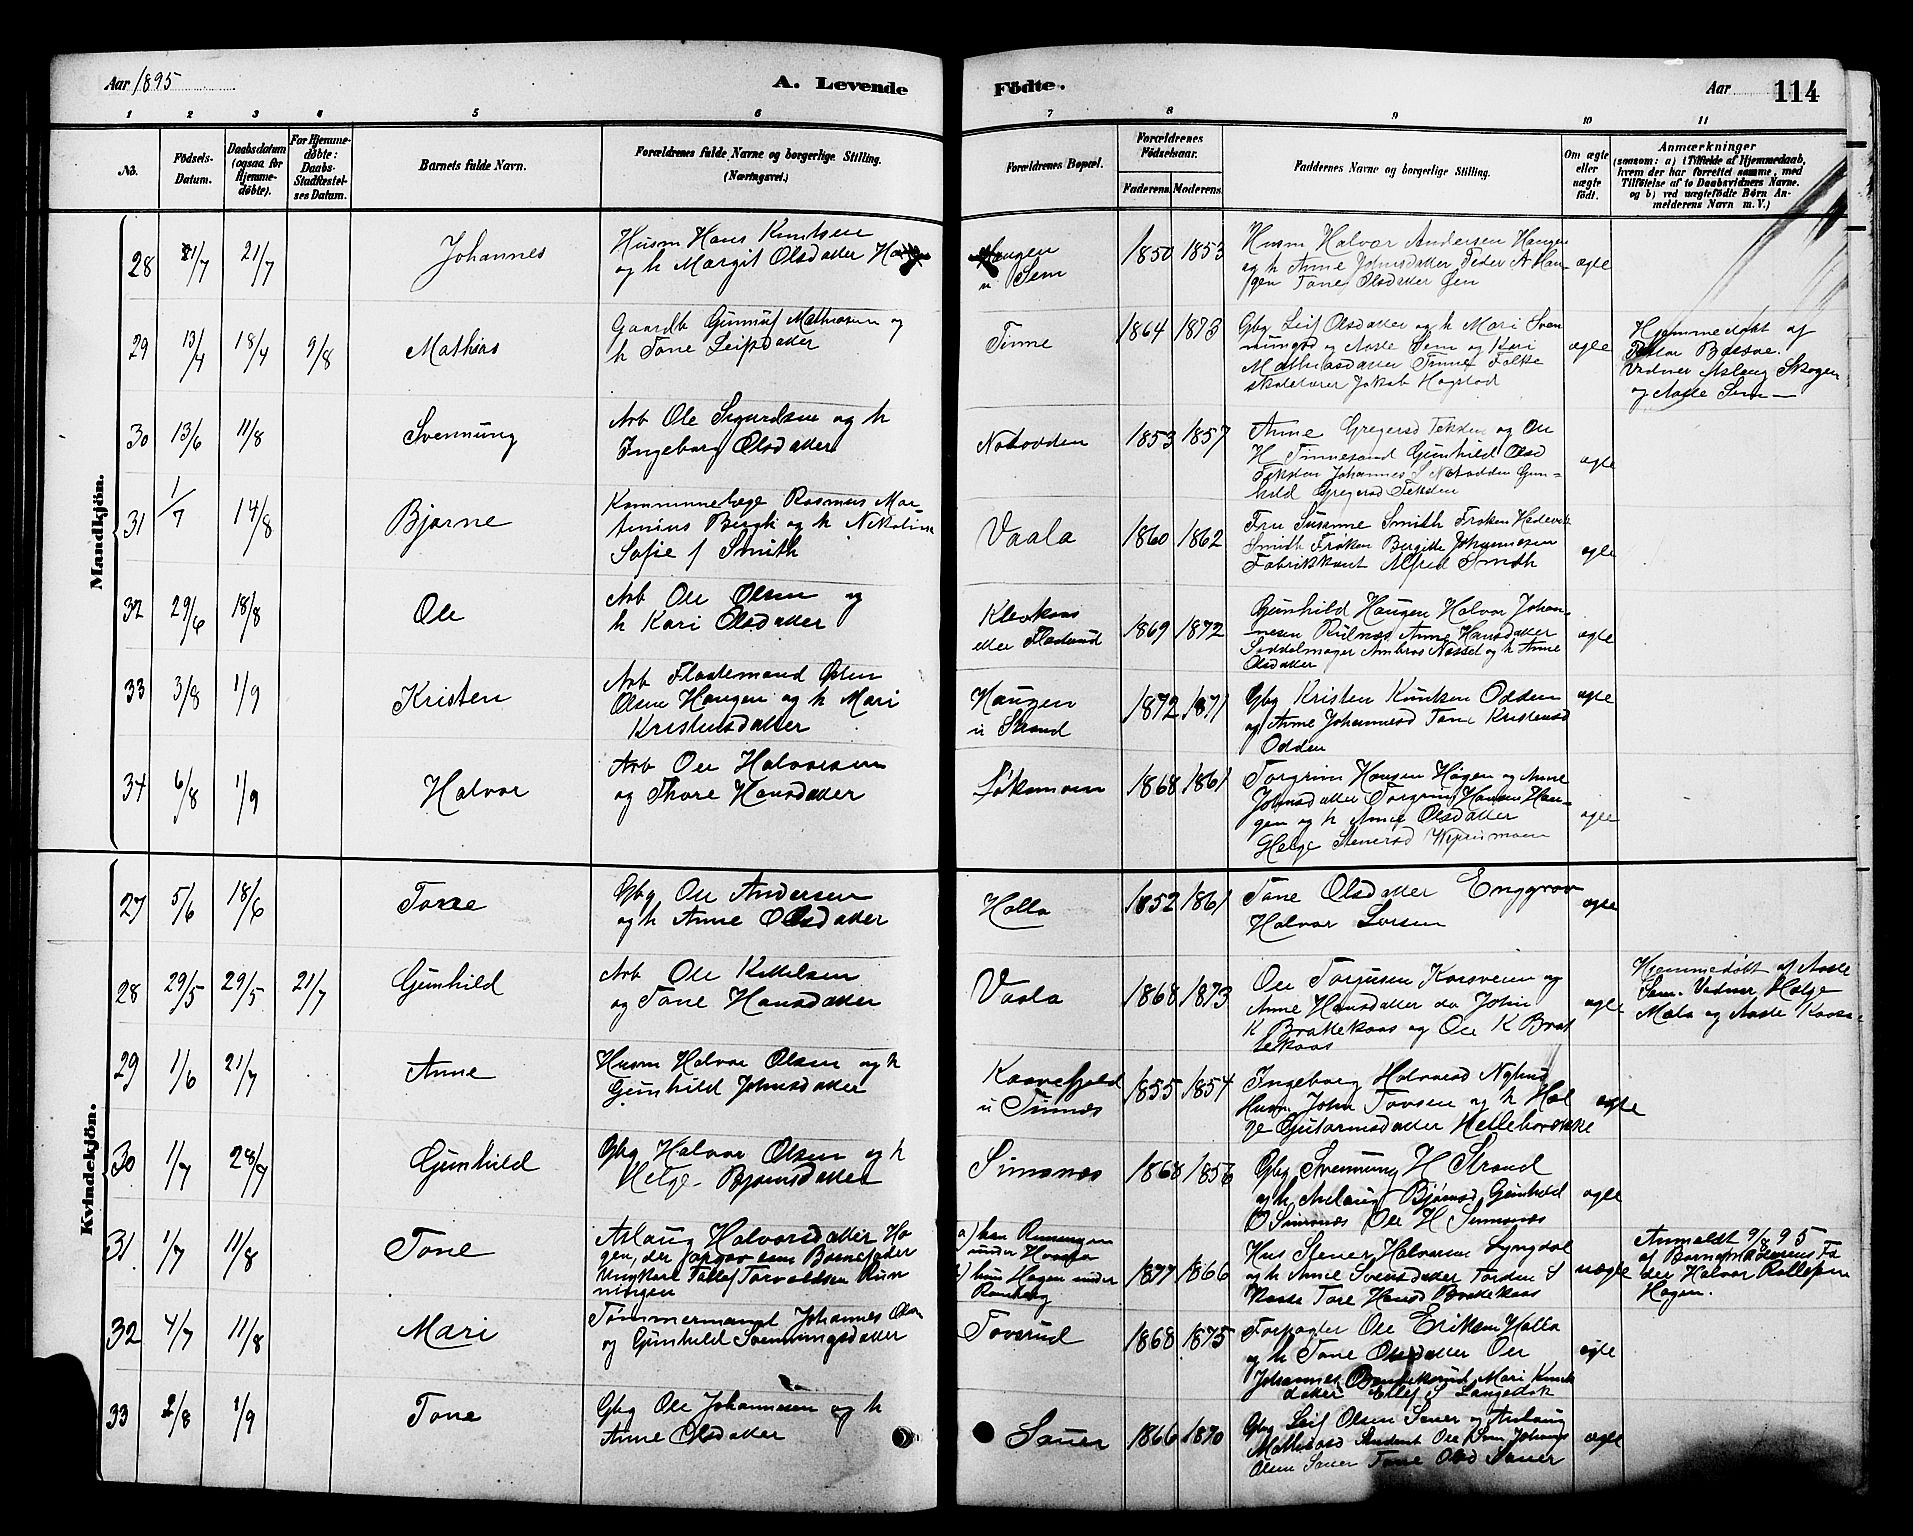 Aar 1895
A. Levende
Födte.
Aar
114
1 2 3 4 5 6 7 8 9 10 11
No.
Födsels-
Datum.
Daabsdatum
(ogsaa for
Hjemme-
døbte).
For Hjemme-
døbte:
Daabs-
Stadfæstel-
ses Datum.
Barnets fulde Navn.
Forældrenes fulde Navne og borgerlige Stilling.
(Næringsvei.)
Forældrenes Bopæl.
Forældrenes
Fødselsaar.
Faderens. Moderens.
Faddernes Navne og borgerlige Stilling.
Om ægte
eller
uægte
født.
Anmærkninger
(saasom: a) i Tilfælde af Hjemmedaab,
hvem der har forrettet samme, med
Tilføielse af to Daabsvidners Navne.
og b) ved uægtefödte Börn An-
melderens Navn m. V.)
Mandkjön.
28 21/7 Johannes
Husm Hans Knutsen
og h Margit Olsdatter
Haugen
u Sem
1850 1853
Husm Halvor Andersen Haugen
og h Anne Johnsdatter Peder A Hau-
gen Tone Olsdatter
ægte
29 13/4 18/4 9/8 Mathias
Gaardb Gunnuf Mathiasen og
h Tone Leifsdatter
Tinne
1864 1873
Gbg Leif Olsdatter og h Mari Sven
og Aaste Sem og Kari
Mathiasdatter Tinne Folke
skolelærer Jakob Hagstad
ægte
Hjemmedøbt af
Vidner Aslaug Skogen
og Aaste Sem
30 13/6 11/8 Svennung
Arb Ole Sigurdsen og h
Ingeborg Olsdatter
Notodden
1853 1857
Anne Gregersd og Ole
H Tinnesand Gunhild Olsd
Johannes S Notodden Gun-
hild Gregersd
ægte
31 1/7 14/8 Bjarne
Kommunelæge Rasmus Mar-
tinius Bergh og h Nikoline
Sofie f Smith
Vaala
1860 1862
Fru Susanne Smith Frøken Hedevik
Smith Frøken Birgitte Johannesen
Fabrikkant Alfred Smith
ægte
32 29/6 18/8 Ole
Arb Ole Olsen og
h Kari Olsdatter
Klevkaas
1869 1872
Gunhild Haugen Halvor Johan-
nesen Anne Hansdatter
Saddelmager Ambros Næsset og h Anne
Olsdatter
ægte
33 3/8 1/9 Kristen
Arb Flaatemand Østen
Olsen Haugen og h Mari
Kristensdatter
Haugen
u Strand
1872 1871
Gbg Kristen Knutsen Odden
og Anne Johannesd Tone Kristensd
Odden
ægte
34 6/8 1/9 Halvor
Arb Ole Halvorsen
og Thore Hansdatter
1868 1861
Torgrim Hansen Høgen og Anne
Johnsdatter Torgrim Hansen Hau-
gen og h Anne Olsdatter
Helge Stenersd
ægte
Kvindekjön.
27 5/6 18/6 Tone
Gbg Ole Andersen
og h Anne Olsdatter
Holla
1852 1861
Tone Olsdatter Enggrav
Halvor Larsen
ægte
28 29/5 29/5 21/7 Gunhild
Arb Ole Kittilsen
og Tone Hansdatter
Vaala
1868 1873
Ole Torjusen Korsveien og
Anne Hansdatter do John
K Brattekaas og Ole K Brat
tekaas
ægte
Hjemmedøbt af Aaste
Sem. Vidner Helge
Mæla og Aaste
29 1/6 21/7 Anne
Husm Halvor Olsen og h
Gunhild Johnsdatter
u Tinnæs
1855 1854
Ingeborg Halvorsd Nylund
Husm John Tovsen og h Hel
ge Guttormsdatter
ægte
30 1/7 28/7 Gunhild
Gbg Halvor Olsen og h
Helge Bjørnsdatter
Simonæs
1868 1856
Gbg Svennung H Strand
og h Aslaug Bjørnsd Gunhild
O Simonæs Ole H Simonæs
ægte
31 1/7 11/8 Tone
Aslaug Halvorsdatter Ha-
gen, der opgav som Barnefader
Ungkarl Tallef Torvaldsen Run
ningen
a) han Runningen
under
b) hun Hagen under
1877 1866
Hus Stener Halvorsen Lyngdal
og h Anne Svensdatter Torden S
Tore Hansd Brattekaas
uægte
Anmeldt 9/8 95
af Barnemoderens Fa
der Halvor Rollefsen
Hagen.
32 4/7 11/8 Mari
Tømmermand Johannes Olsen
og Gunhild Svennungsdatter
Toverud
1868 1875
Forpagter Ole Eriksen Holla
og h Tone Olsdatter Ole
Johannes Mari Knuts
datter Ellef S
ægte
33 2/8 1/9 Tone
Gbg Ole Johannesen og h
Anne Olsdatter
Sauer
1866 1870
Gbg Leif Olsen Sauer og Aslaug
Mathiasd Student Ole
Olsen Sauer Tone Olsd Sauer
ægte